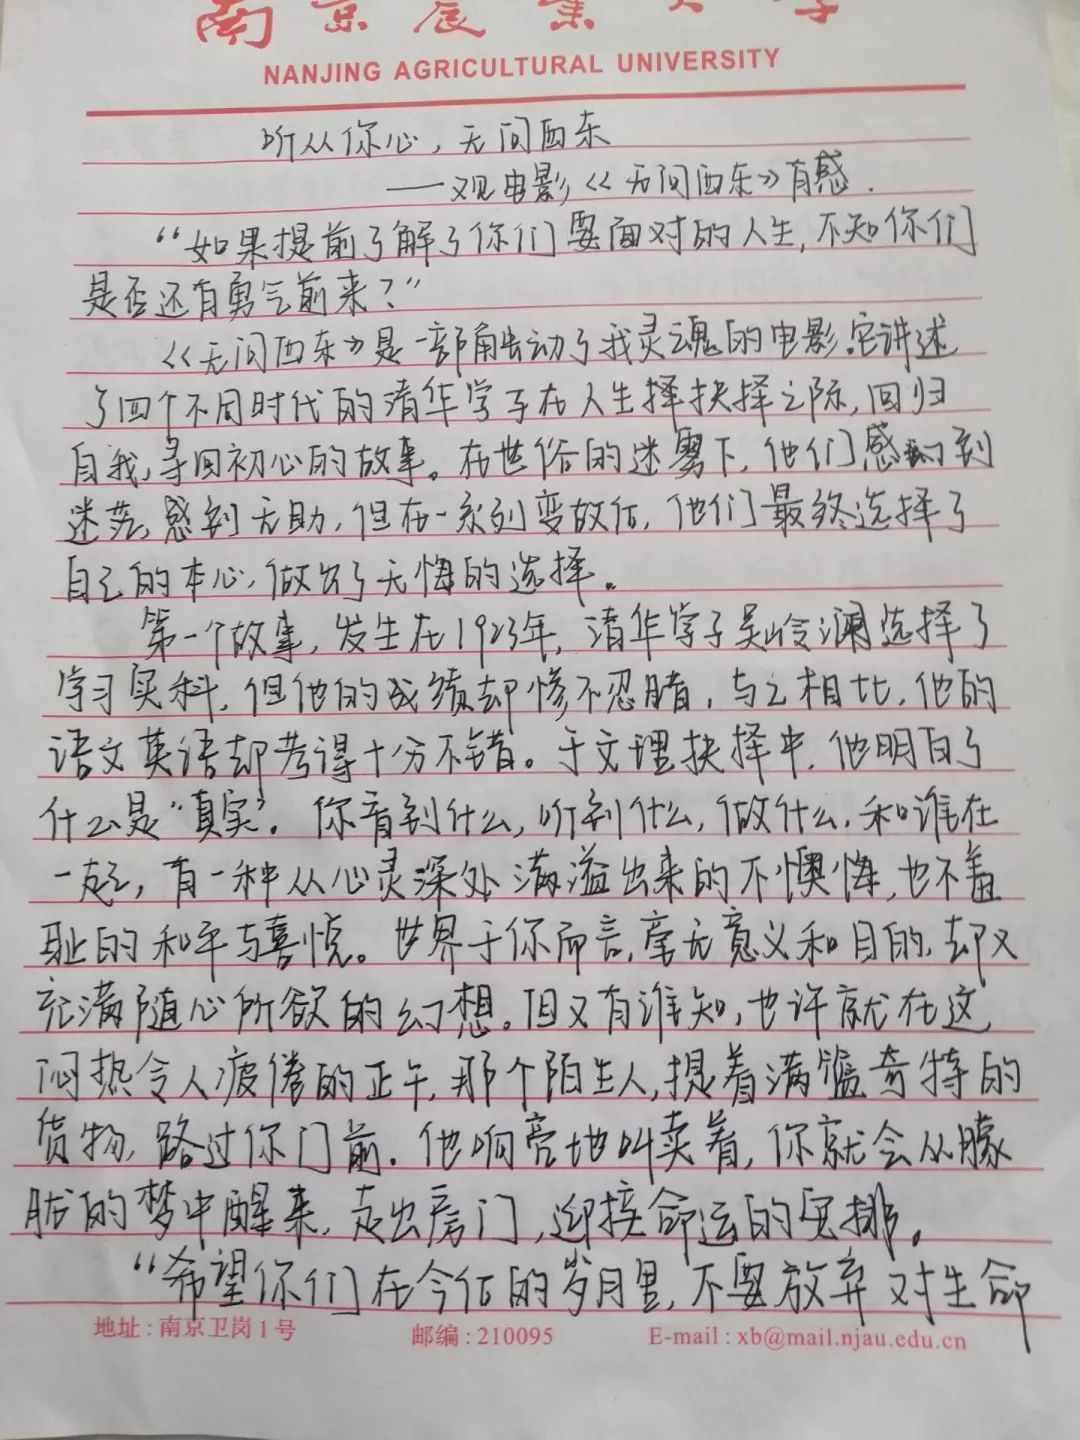 南京农业大学
NANJING AGRICULTURAL UNIVERSITY
听从你心，无问西东
——观电影《无问西东》有感.
“如果提前了解了你们要面对的人生,不知你们
是否还有勇气前来？”
《无问西东》是一部触动了我灵魂的电影.它讲述
了四个不同时代的清华学子在人生择抉择之际,回归
自我,寻回初心的故事。在世俗的迷雾下,他们感到
迷茫,感到无助,但在一系列变故后,他们最终选择了
自己的本心,做出了无悔的选择。
第一个故事,发生在1923年,清华学子吴岭澜选择了
学习实科,但他的成绩却惨不忍睹,与之相比,他的
语文英语却考得十分不错。于文理抉择中,他明白了
什么是“真实”。你看到什么,听到什么,做什么,和谁在
一起,有一种从心灵深处满溢出来的不懊悔,也不羞
耻的和平与喜悦。世界于你而言,毫无意义和目的,却又
充满随心所欲的幻想。但又有谁知,也许就在这
闷热令人疲倦的正午,那个陌生人,提着满篮奇特的
货物,路过你门前.他响亮地叫卖着,你就会从朦
胧的梦中醒来,走出房门,迎接命运的安排。
“希望你们在今后的岁月里,不要放弃对生命
地址:南京卫岗1号 邮编:210095 E-mail:xb@mail.njau.edu.cn